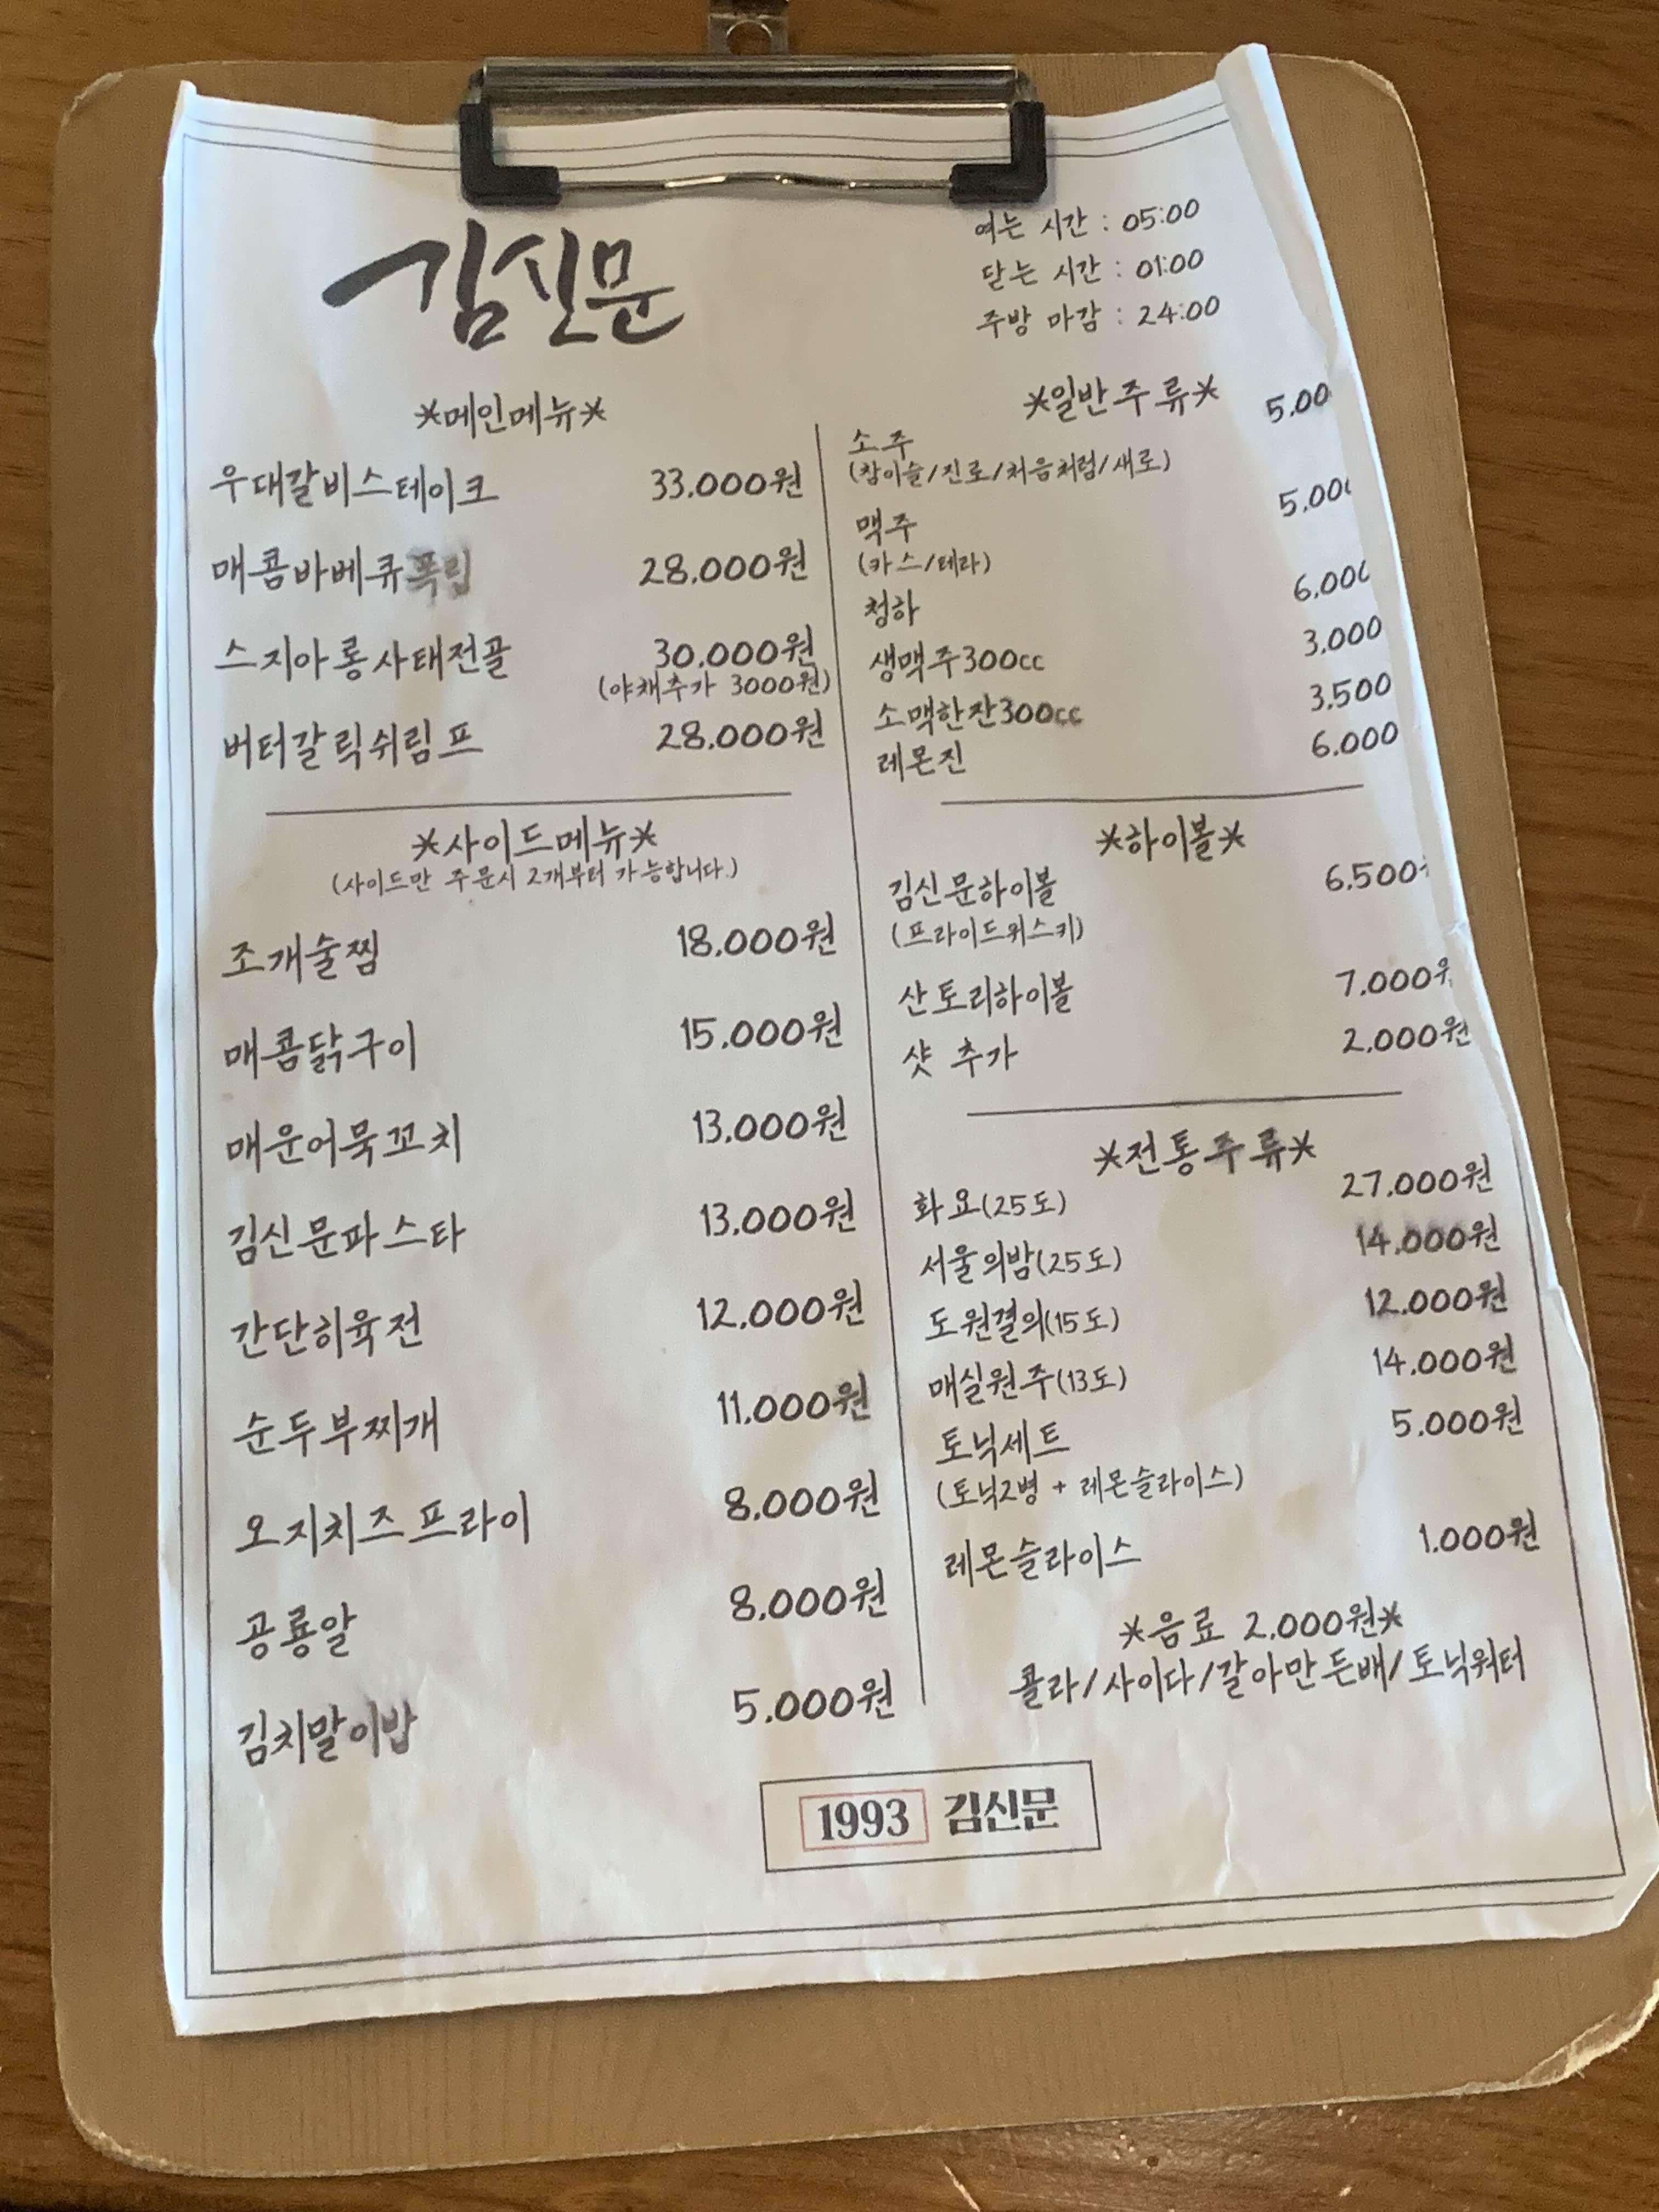 김신문
여는 시간 : 05:00
닫는 시간 : 01:00
주방 마감 : 24:00
*메인메뉴*
우대갈비스테이크 33.000원
매콤바베큐폭립 28.000원
스지아롱사태전골 30.000원
(야채추가 3000원)
버터갈릭쉬림프 28.000원
*사이드메뉴*
(사이드만 주문시 2개부터 가능합니다.)
조개술찜 18.000원
매콤닭구이 15.000원
매운어묵꼬치 13.000원
김신문파스타 13.000원
간단히육전 12.000원
순두부찌개 11.000원
오지치즈프라이 8.000원
공룡알 8.000원
김치말이밥 5.000원
*일반주류*
소주 5.00
(참이슬/진로/처음처럼/새로)
맥주 5.00
(카스/테라)
청하 6.00
생맥주300cc 3.000
소맥한잔300cc 3.500
레몬진 6.000
*하이볼*
김신문하이볼 6.500
(프라이드위스키)
산토리하이볼 7.000
샷 추가 2.000원
*전통주류*
화요(25도) 27.000원
서울의밤(25도) 14.000원
도원결의(15도) 12.000원
매실원주(13도) 14.000원
토닉세트 5.000원
(토닉2병 + 레몬슬라이스)
레몬슬라이스 1.000원
*음료 2.000원*
콜라/사이다/갈아만든배/토닉워터
1993 김신문